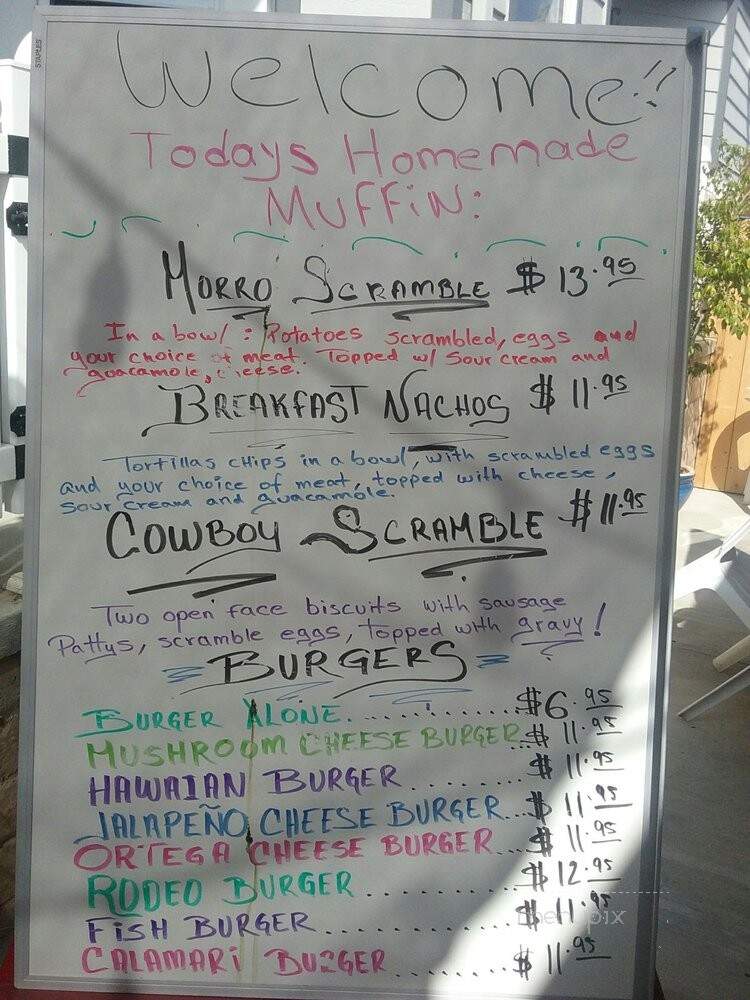 STAPLES
Welcome!!
Todays Homemade
MUFFiN:
MORRO SCRAMBLE $13.95
In a bowl: Potatoes scrambled, eggs and
your choice of meat. Topped w/ Sour cream and
guacamole, cheese.
BREAKFAST NACHOS $11.95
Tortillas cHips in a bowl, with scrambled eggs
and your choice of meat, topped with cheese,
sour cream and guacamole.
COWBOY SCRAMBLE $11.95
Two open face biscuits with sausage
Pattys, scramble eggs, topped with gravy!
BURGERS
BURGER ALONE........... $6.95
MUSHROOM CHEESE BURGER...$11.95
HAWAIAN BURGER........$11.95
JALAPEÑO CHEESE BURGER...$11.95
ORTEGA CHEESE BURGER...$11.95
RODEO BURGER..........$12.95
FISH BURGER............$11.95
CALAMARI BURGER.......$11.95